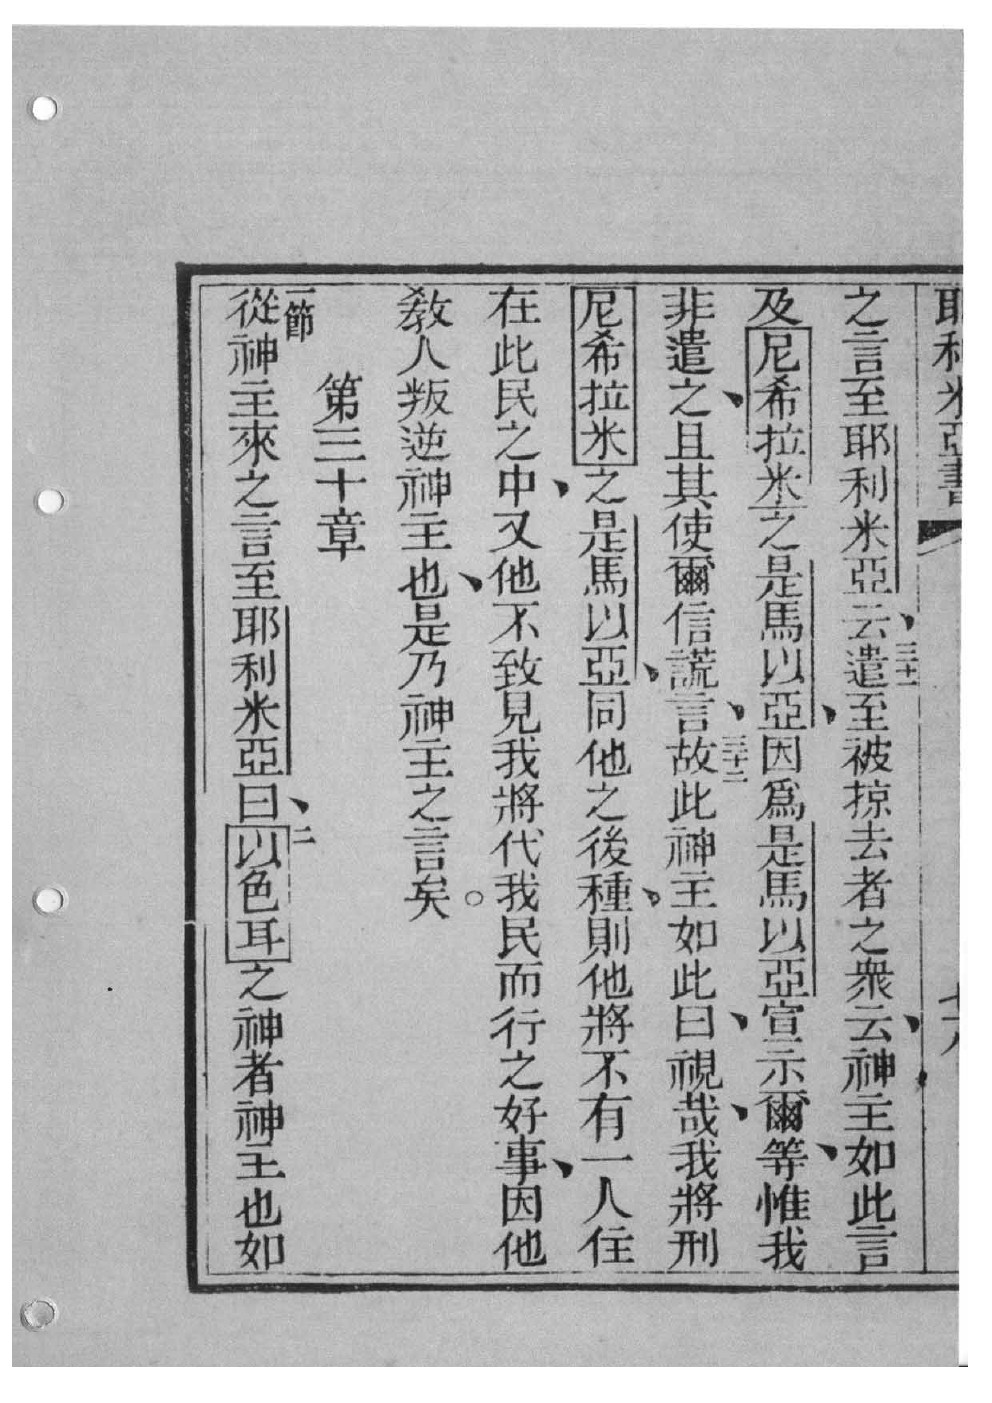 耶利米亞書
之言至耶利米亞云、三十一遣至被掠去者之衆云、神主如此言
及尼希拉米之是馬以亞、因爲是馬以亞宣示爾等、惟我
非遣之、且其使爾信謊言、三十二故此神主如此曰、視哉、我將刑
尼希拉米之是馬以亞、同他之後種、則他將不有一人住
在此民之中、又他不致見我將代我民而行之好事、因他
教人叛逆神主也、是乃神主之言矣。
第三十章
一節從神主來之言至耶利米亞曰、二以色耳之神者神主也如